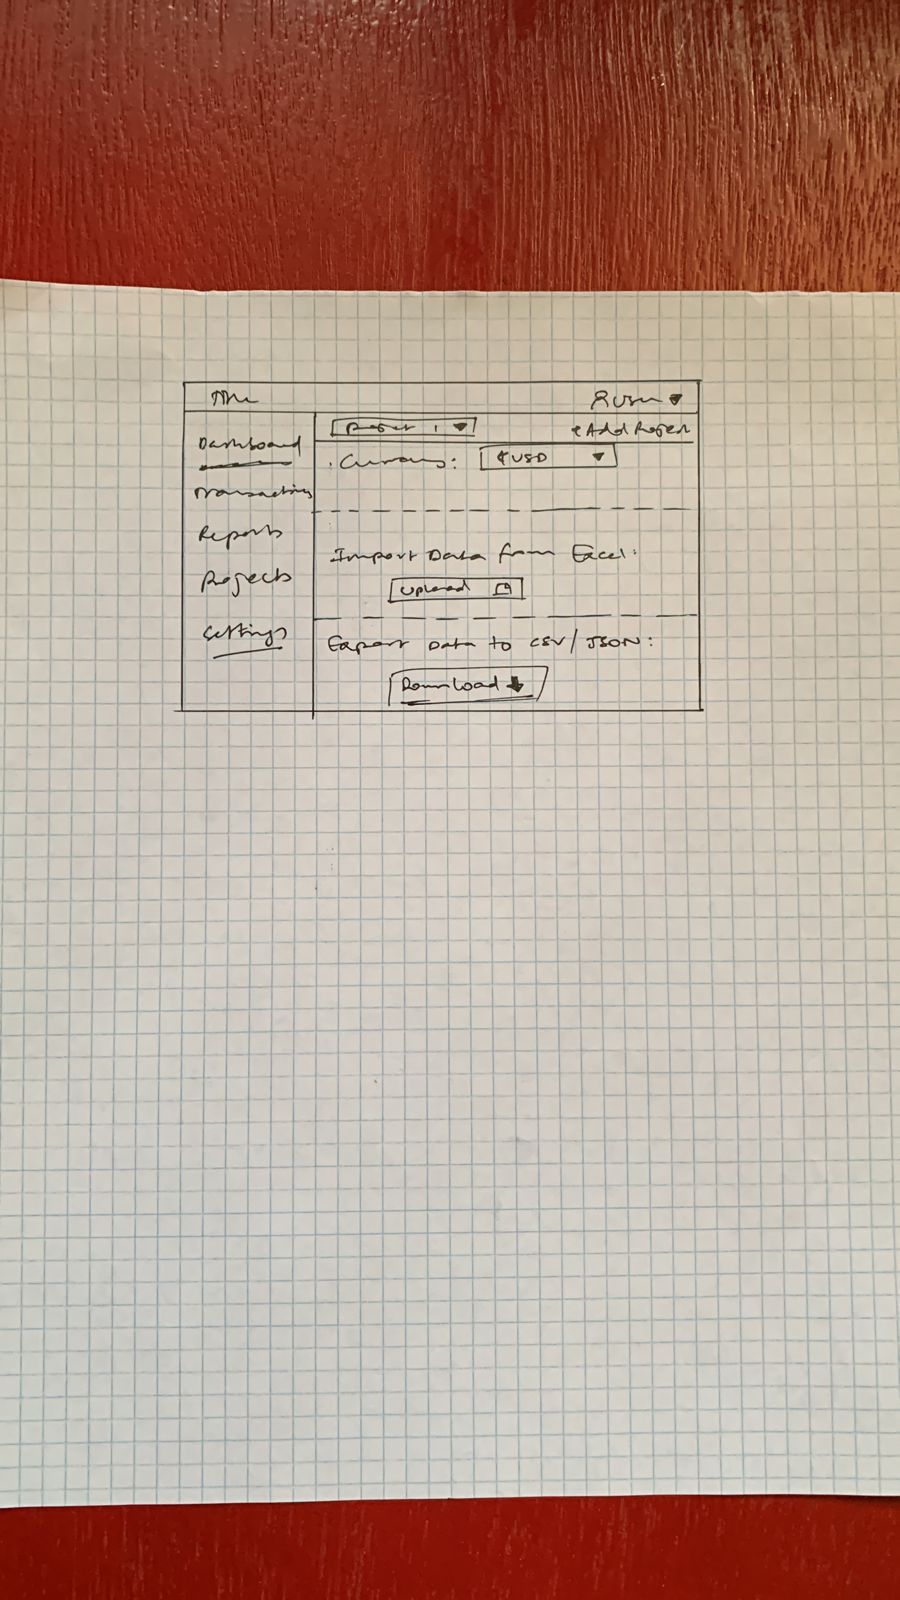 Title
User ▼
Dashboard
Transactions
Reports
Projects
Settings
Project 1 ▼
+Add Project
Currency: $USD ▼
Import Data from Excel:
Upload
Export Data to CSV/JSON:
Download